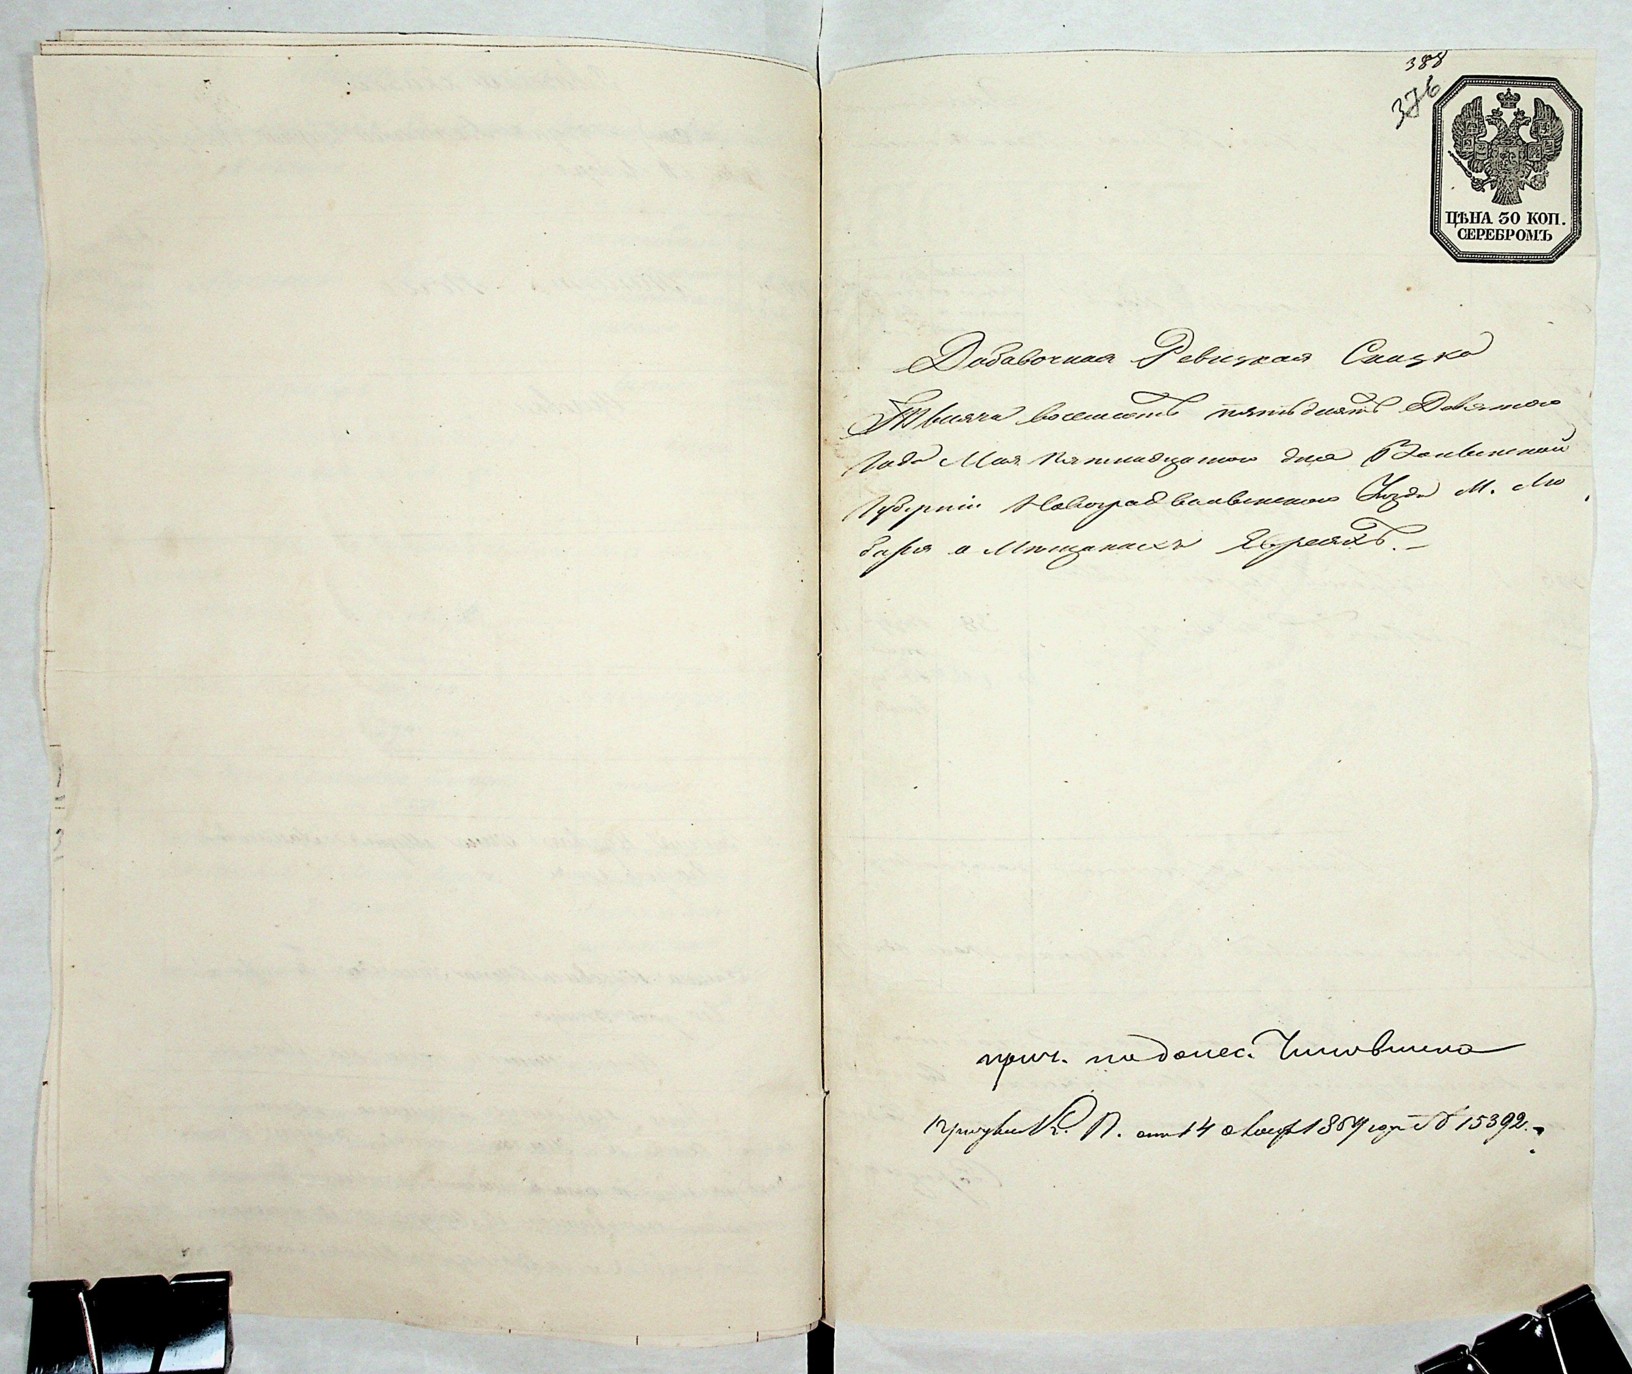 388
376
ЦѢНА 30 КОП.
СЕРЕБРОМЪ
Добавочная Ревизкая Сказка
Тысяча восемсотъ пятьдисятъ Девятого
Года Мая Пятнадцатого дня Волынской
Губерніи Новоградволынского Уезда М. Лю
баря о Мещанахъ Евреяхъ. —
прич. по донес. Чиновника
К. П. от 14 1869 года № 15392.